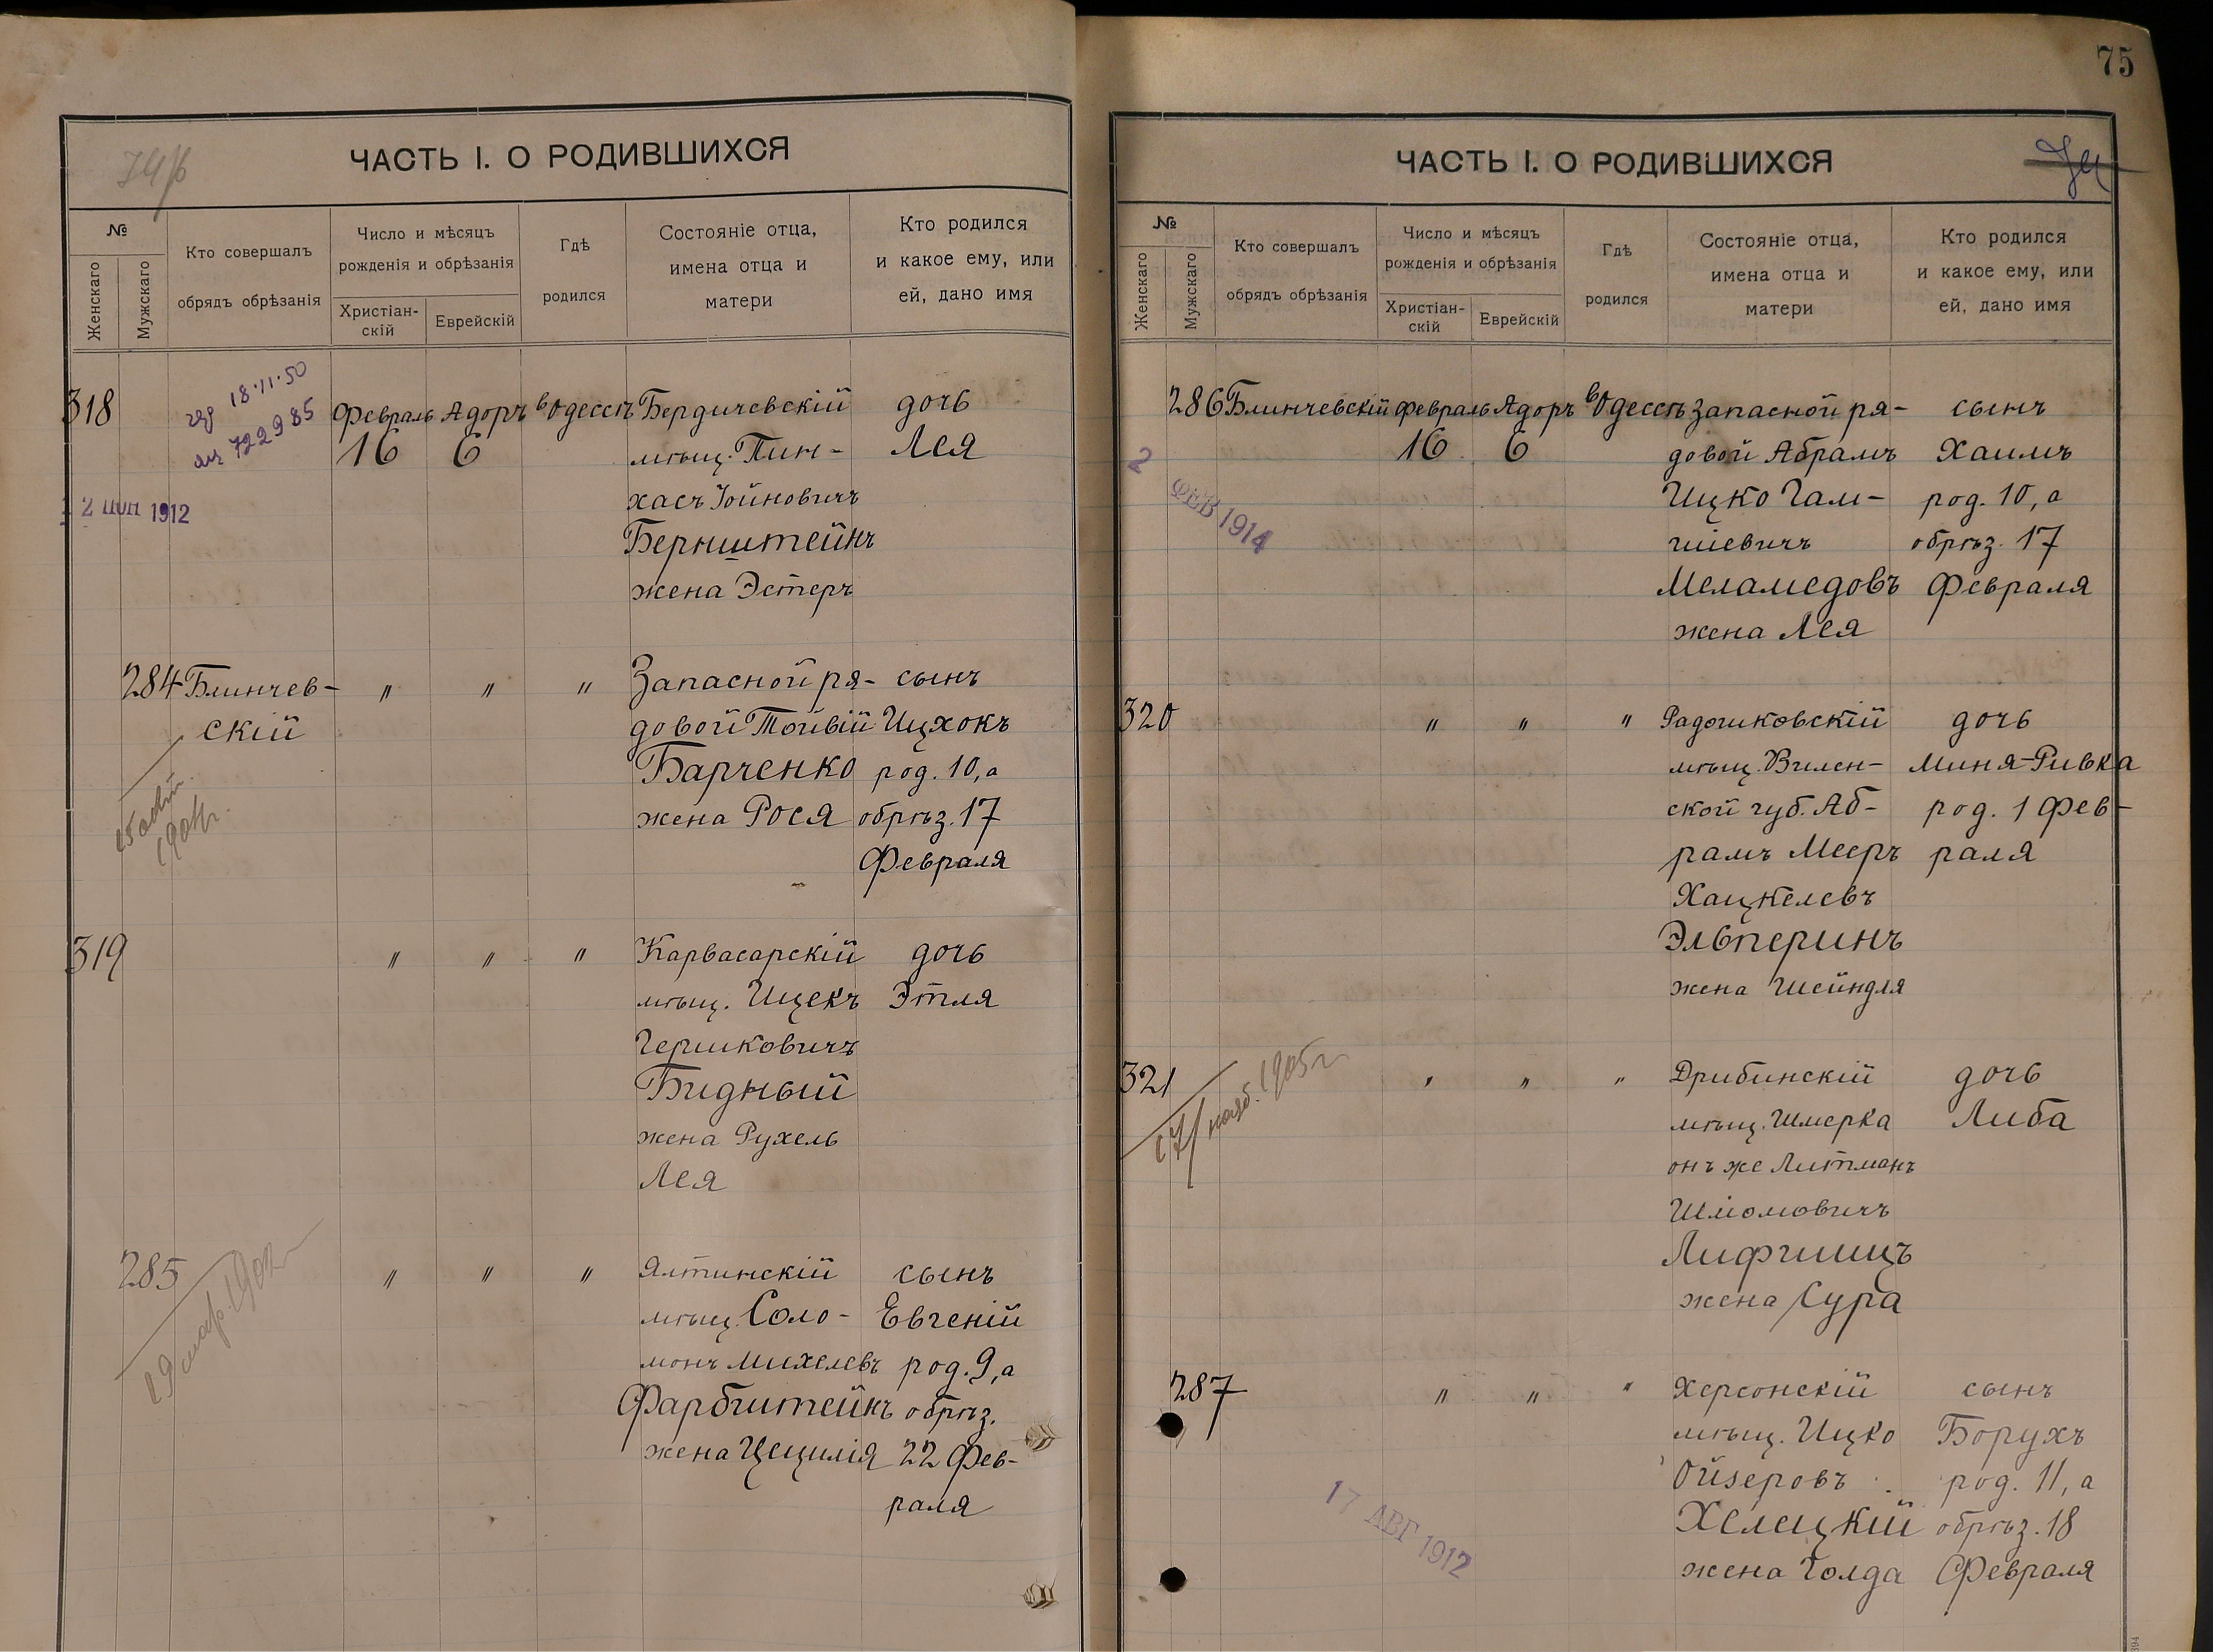 ЧАСТЬ I. О РОДИВШИХСЯ
№
Женскаго
Мужскаго
Кто совершалъ
обрядъ обрѣзанія
Число и мѣсяцъ
рожденія и обрѣзанія
Христіан-
скій
Еврейскій
Гдѣ
родился
Состояніе отца,
имена отца и
матери
Кто родился
и какое ему, или
ей, дано имя
318 Февраль Адоръ въ Одессѣ Бердичевскій дочь
16 6 мѣщ. Пин- Лея
хасъ Іойновичъ
Бернштейнъ
жена Эстеръ
18·11·50
722985
12 ІЮН 1912
284 Блинчев- " " " Запасной ря- сынъ
скій довой Тойвій Ицхокъ
Барченко род. 10, а
жена Рося обрѣз. 17
Февраля
319 " " " Карвасарскій дочь
мѣщ. Ицекъ Этля
Гершковичъ
Бидный
жена Рухель
Лея
285 " " " Ялтинскій сынъ
мѣщ. Соло- Евгеній
монъ Михелевъ род. 9, а
Фарбштейнъ обрѣз.
жена Цецилія 22 Фев-
раля
75
ЧАСТЬ I. О РОДИВШИХСЯ
№
Женскаго
Мужскаго
Кто совершалъ
обрядъ обрѣзанія
Число и мѣсяцъ
рожденія и обрѣзанія
Христіан-
скій
Еврейскій
Гдѣ
родился
Состояніе отца,
имена отца и
матери
Кто родился
и какое ему, или
ей, дано имя
286 Блинчевскій Февраль Адоръ въ Одессѣ Запасной ря- сынъ
16 6 довой Абрамъ Хаимъ
Ицко Гам- род. 10, а
шіевичъ обрѣз. 17
Меламедовъ Февраля
жена Лея
2 ФЕВ 1914
320 " " " Радошковскій дочь
мѣщ. Вилен- Миня-Ривка
ской губ. Аб- род. 1 Фев-
рамъ Мееръ раля
Хацкелевъ
Эльперинъ
жена Шейндля
321 " " " Дрибинскій дочь
мѣщ. Шмерка Либа
онъ же Литманъ
Шліомовичъ
Лифшицъ
жена Сура
17/ нояб. 1905 г
287 " " " Херсонскій сынъ
мѣщ. Ицко Борухъ
Ойзеровъ род. 11, а
Хелецкій обрѣз. 18
жена Голда Февраля
17 АВГ 1912